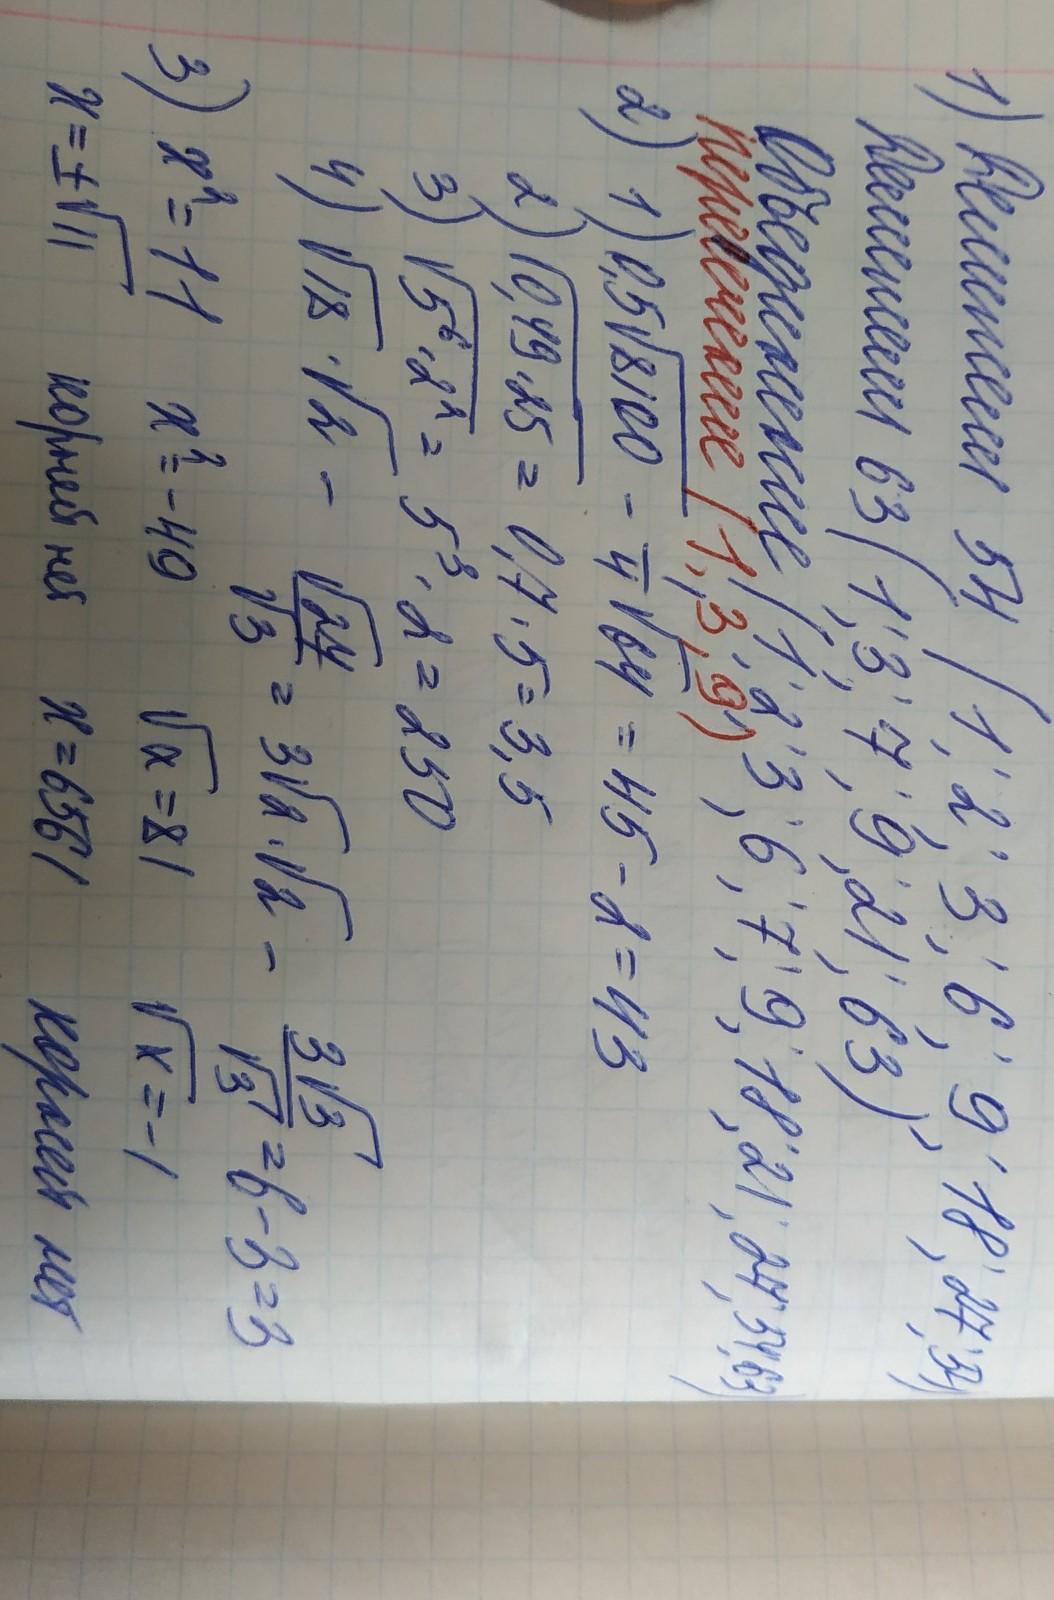 1) Делители 54 (1; 2; 3; 6; 9; 18; 27; 54)
Делители 63 (1; 3; 7; 9; 21; 63);
Объединение (1; 2; 3; 6; 7; 9; 18; 21; 27; 54; 63)
пересечение (1; 3; 9)
2) 1) 0,5√8100 - 1/4 √64 = 45 - 2 = 43
2) √0,49·25 = 0,7·5 = 3,5
3) √5⁶·2² = 5³·2 = 250
4) √18·√2 - √27/√3 = 3√2·√2 - 3√3/√3 = 6 - 3 = 3
3) x² = 11 x² = -49 √x = 81 √x = -1
x = ±√11 корней нет x = 6561 корней нет